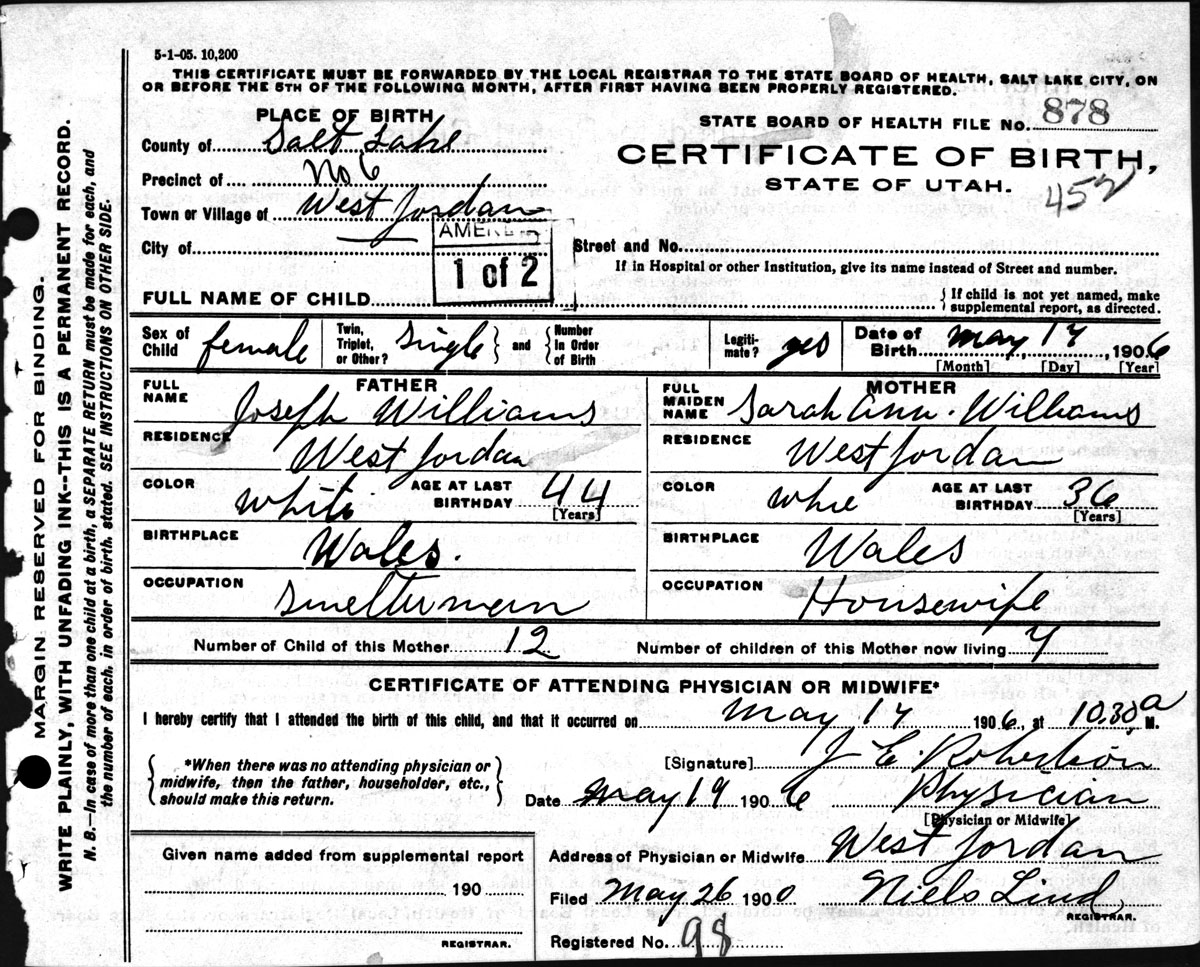 5-1-05. 10,200
THIS CERTIFICATE MUST BE FORWARDED BY THE LOCAL REGISTRAR TO THE STATE BOARD OF HEALTH, SALT LAKE CITY, ON
OR BEFORE THE 5TH OF THE FOLLOWING MONTH, AFTER FIRST HAVING BEEN PROPERLY REGISTERED.
PLACE OF BIRTH
STATE BOARD OF HEALTH FILE No. 878
County of Salt Lake
CERTIFICATE OF BIRTH,
STATE OF UTAH.
452
Precinct of No 6
Town or Village of West Jordan
City of
1 of 2
Street and No.
If in Hospital or other Institution, give its name instead of Street and number.
FULL NAME OF CHILD
{ If child is not yet named, make
supplemental report, as directed.
Sex of Child female
Twin, Triplet, or Other? Single } and { Number In Order of Birth
Legiti-mate? yes
Date of Birth May 17, 1906
[Month] [Day] [Year]
FATHER
FULL NAME Joseph Williams
RESIDENCE West Jordan
COLOR White AGE AT LAST BIRTHDAY 44
[Years]
BIRTHPLACE Wales.
OCCUPATION Smelterman
MOTHER
FULL MAIDEN NAME Sarah Ann. Williams
RESIDENCE West Jordan
COLOR whie AGE AT LAST BIRTHDAY 36
[Years]
BIRTHPLACE Wales
OCCUPATION Housewife
Number of Child of this Mother 12 Number of children of this Mother now living 7
CERTIFICATE OF ATTENDING PHYSICIAN OR MIDWIFE*
I hereby certify that I attended the birth of this child, and that it occurred on May 17 1906, at 10.30 a M.
{ *When there was no attending physician or
midwife, then the father, householder, etc.,
should make this return. }
[Signature] J E. Robertson
Date May 19 1906 Physician
[Physician or Midwife]
Given name added from supplemental report
190
REGISTRAR.
Address of Physician or Midwife West Jordan
Filed May 26 1900 Niels Lind,
REGISTRAR.
Registered No. 98
MARGIN RESERVED FOR BINDING.
WRITE PLAINLY, WITH UNFADING INK--THIS IS A PERMANENT RECORD.
N. B.—In case of more than one child at a birth, a SEPARATE RETURN must be made for each, and
the number of each, in order of birth, stated. SEE INSTRUCTIONS ON OTHER SIDE.